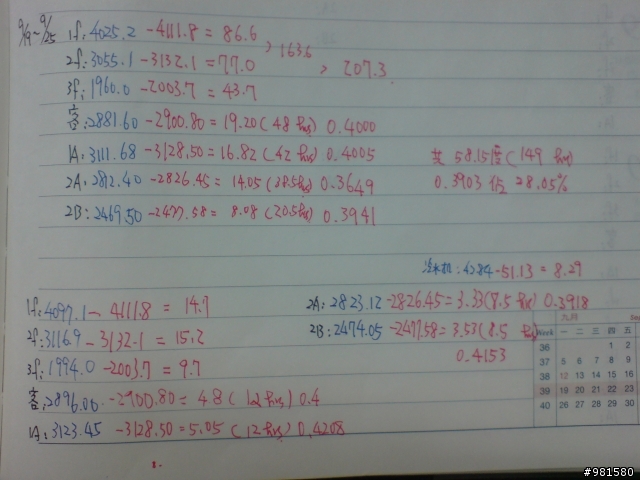 9/19~9/25
1f: 4025.2 -4111.8 = 86.6
2f: 3055.1 -3132.1 = 77.0
> 163.6
3f: 1960.0 -2003.7 = 43.7
> 207.3
客: 2881.60 -2900.80 = 19.20 (48 hrs) 0.4000
1A: 3111.68 -3128.50 = 16.82 (42 hrs) 0.4005
2A: 2812.40 -2826.45 = 14.05 (38.5hrs) 0.3649
2B: 2469.50 -2477.58 = 8.08 (20.5hrs) 0.3941
共 58.15度 (149 hrs)
0.3903 佔 28.05%
冷水机: 4284 -51.13 = 8.29
1f: 4097.1 - 4111.8 = 14.7
2f: 3116.9 - 3132.1 = 15.2
3f: 1994.0 -2003.7 = 9.7
客: 2896.00 -2900.80 = 48 (12 hrs) 0.4
1A: 3123.45 -3128.50 = 5.05 (12 hrs) 0.4208
2A: 2823.12 -2826.45 = 3.33 (8.5 hrs) 0.3918
2B: 2474.05 -2477.58 = 3.53 (8.5 hrs)
0.4153
九月 Se
Week 一 二 三 四 五
36 1 2
37 5 6 7 8 9
38 12 13 14 15 16
39 19 20 21 22 23
40 26 27 28 29 30
#981580